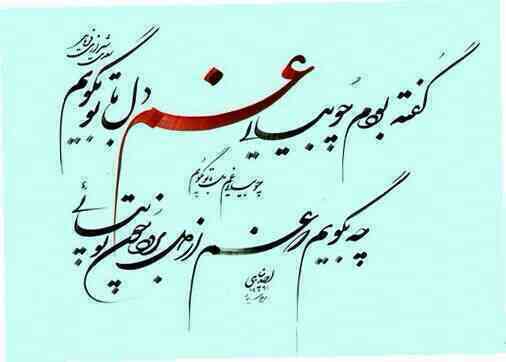 سعدی شیرازی
گفته بودم چو بیایی غم دل با تو بگویم
چو بیایی غم دل با تو بگویم
چه بگویم که غم از دل برود چون تو بیایی